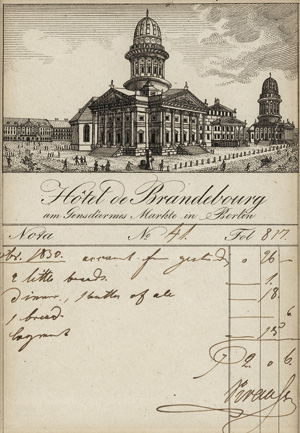 Hôtel de Brandebourg
am Gensdärmes Markte in Berlin
Nota No 41. Fol 817.
br. 1830. account for yesterday 0 26 –
2 little breads – 1.
Dinner, 1 bottle of ale – 18.
1 bread 6
15
2. 0. 6
Krause